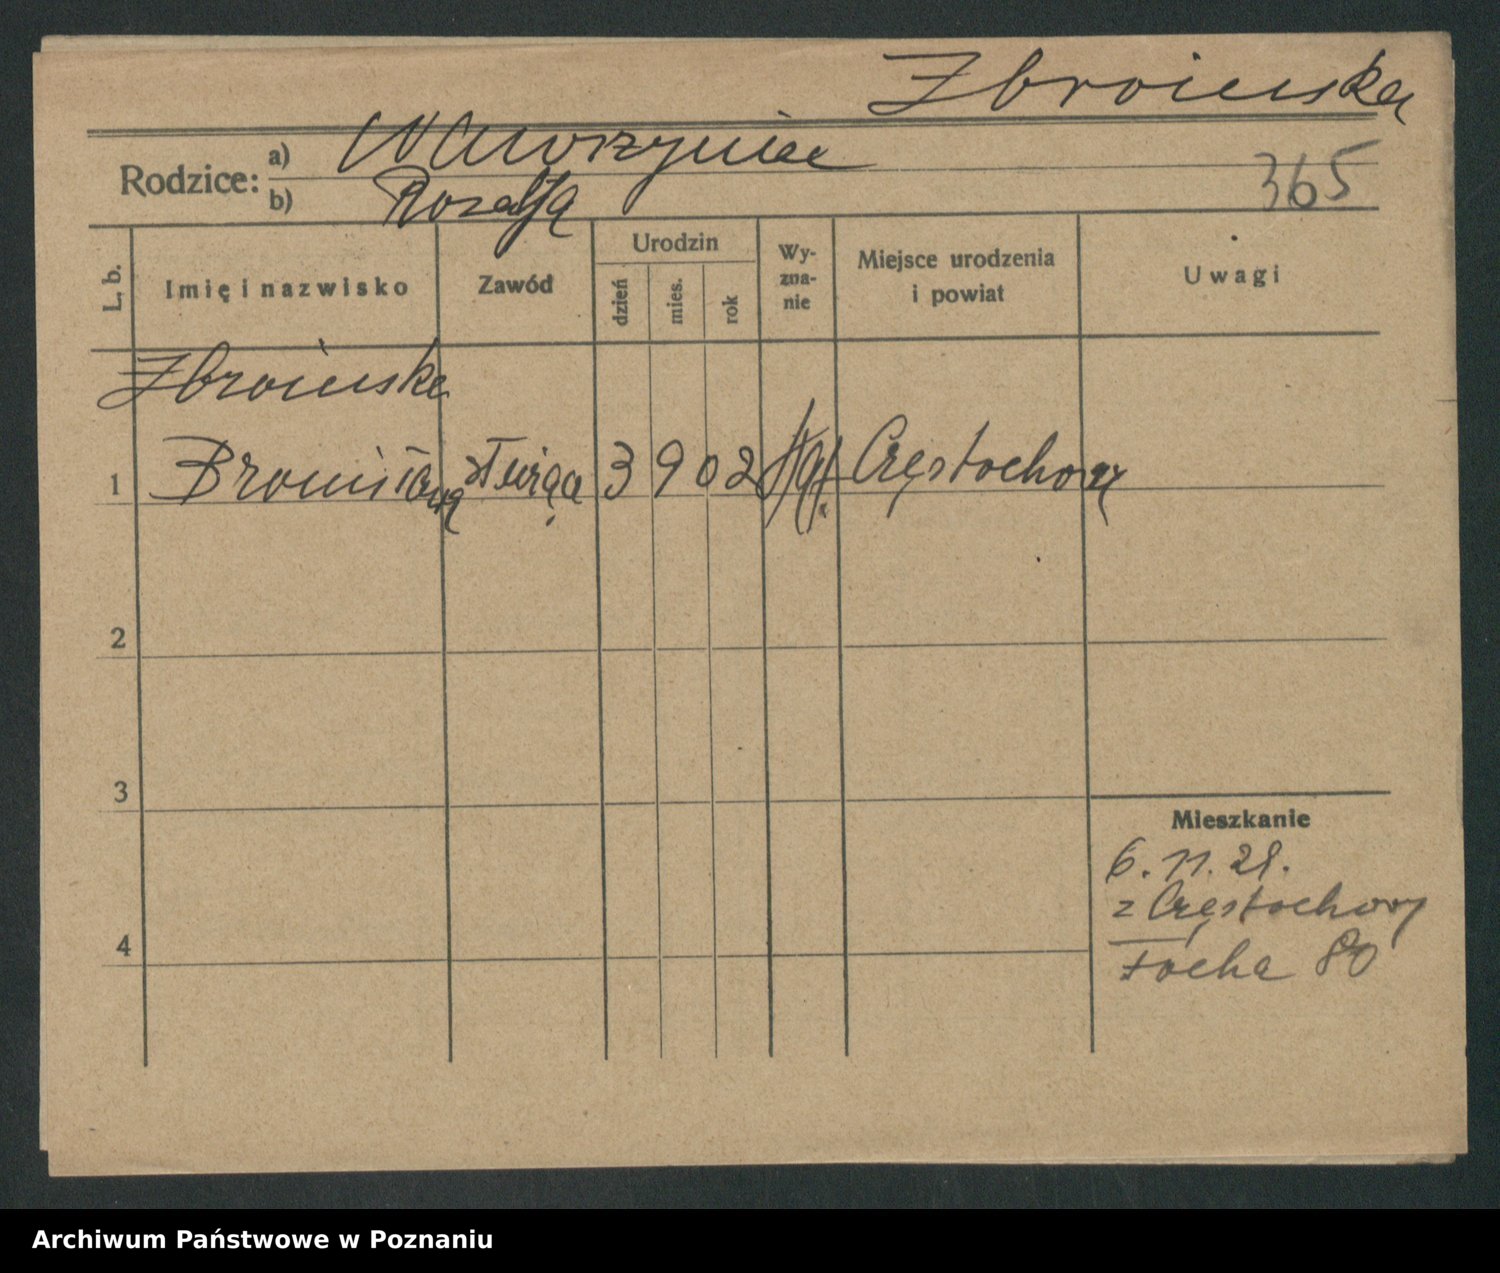 Zbroińska
Rodzice: a) Wawrzyniec
b) Rozalja
365
L. b. Imię i nazwisko Zawód Urodzin dzień mies. rok Wy-zna-nie Miejsce urodzenia i powiat Uwagi
Zbroińska
1 Bronisława służąca 3 9 02 Częstochowy
2
3
Mieszkanie
6. 11. 21.
z Częstochowy
4
Focha 80
Archiwum Państwowe w Poznaniu